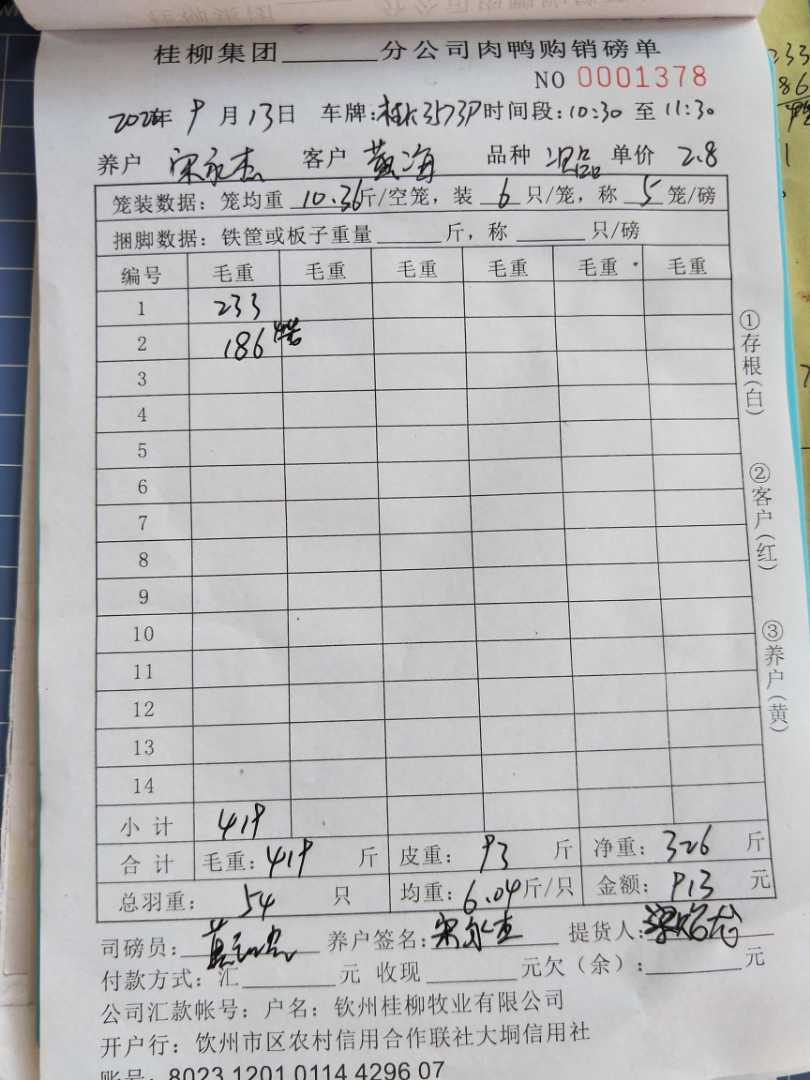 桂柳集团______分公司肉鸭购销磅单
NO 0001378
年 9月13日 车牌:桂K3573P 时间段:10:30 至 11:30
养户 宋永杰 客户 黄海 品种 单价 2.8
笼装数据：笼均重 10.36斤/空笼，装 6 只/笼，称 5 笼/磅
捆脚数据：铁筐或板子重量______斤，称______只/磅
编号 毛重 毛重 毛重 毛重 毛重 毛重
1 233
2 186
3
4
5
6
7
8
9
10
11
12
13
14
小计 419
合计 毛重：419 斤 皮重：93 斤 净重：326 斤
总羽重：54 只 均重：6.04斤/只 金额：913 元
司磅员： 养户签名：宋永杰 提货人：
付款方式：汇______元 收现______元欠（余）：______元
公司汇款帐号：户名：钦州桂柳牧业有限公司
开户行：饮州市区农村信用合作联社大垌信用社
账号：8023 1201 0114 4296 07
①存根(白)
②客户(红)
③养户(黄)